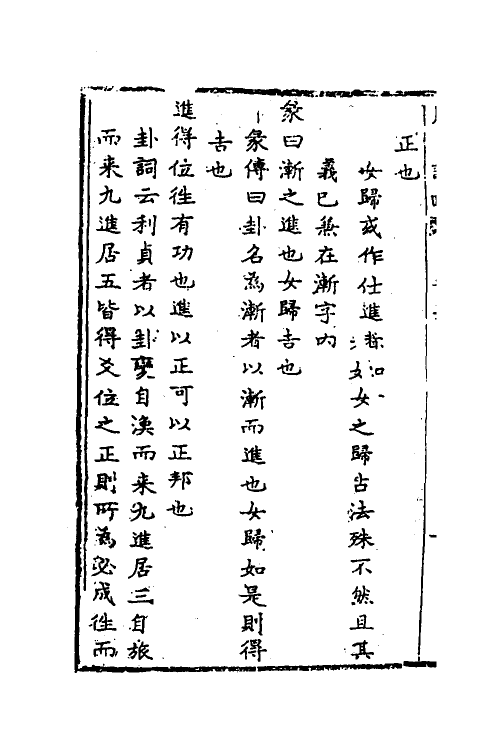 正也
女歸或作仕進者如女之歸占法殊不然且其
義已兼在漸字内
彖曰漸之進也女歸吉也
彖傳曰卦名為漸者以漸而進也女歸如是則得
吉也
進得位徃有功也進以正可以正邦也
卦詞云利貞者以卦變自渙而来九進居三自旅
而来九進居五皆得爻位之正則所為必成徃而